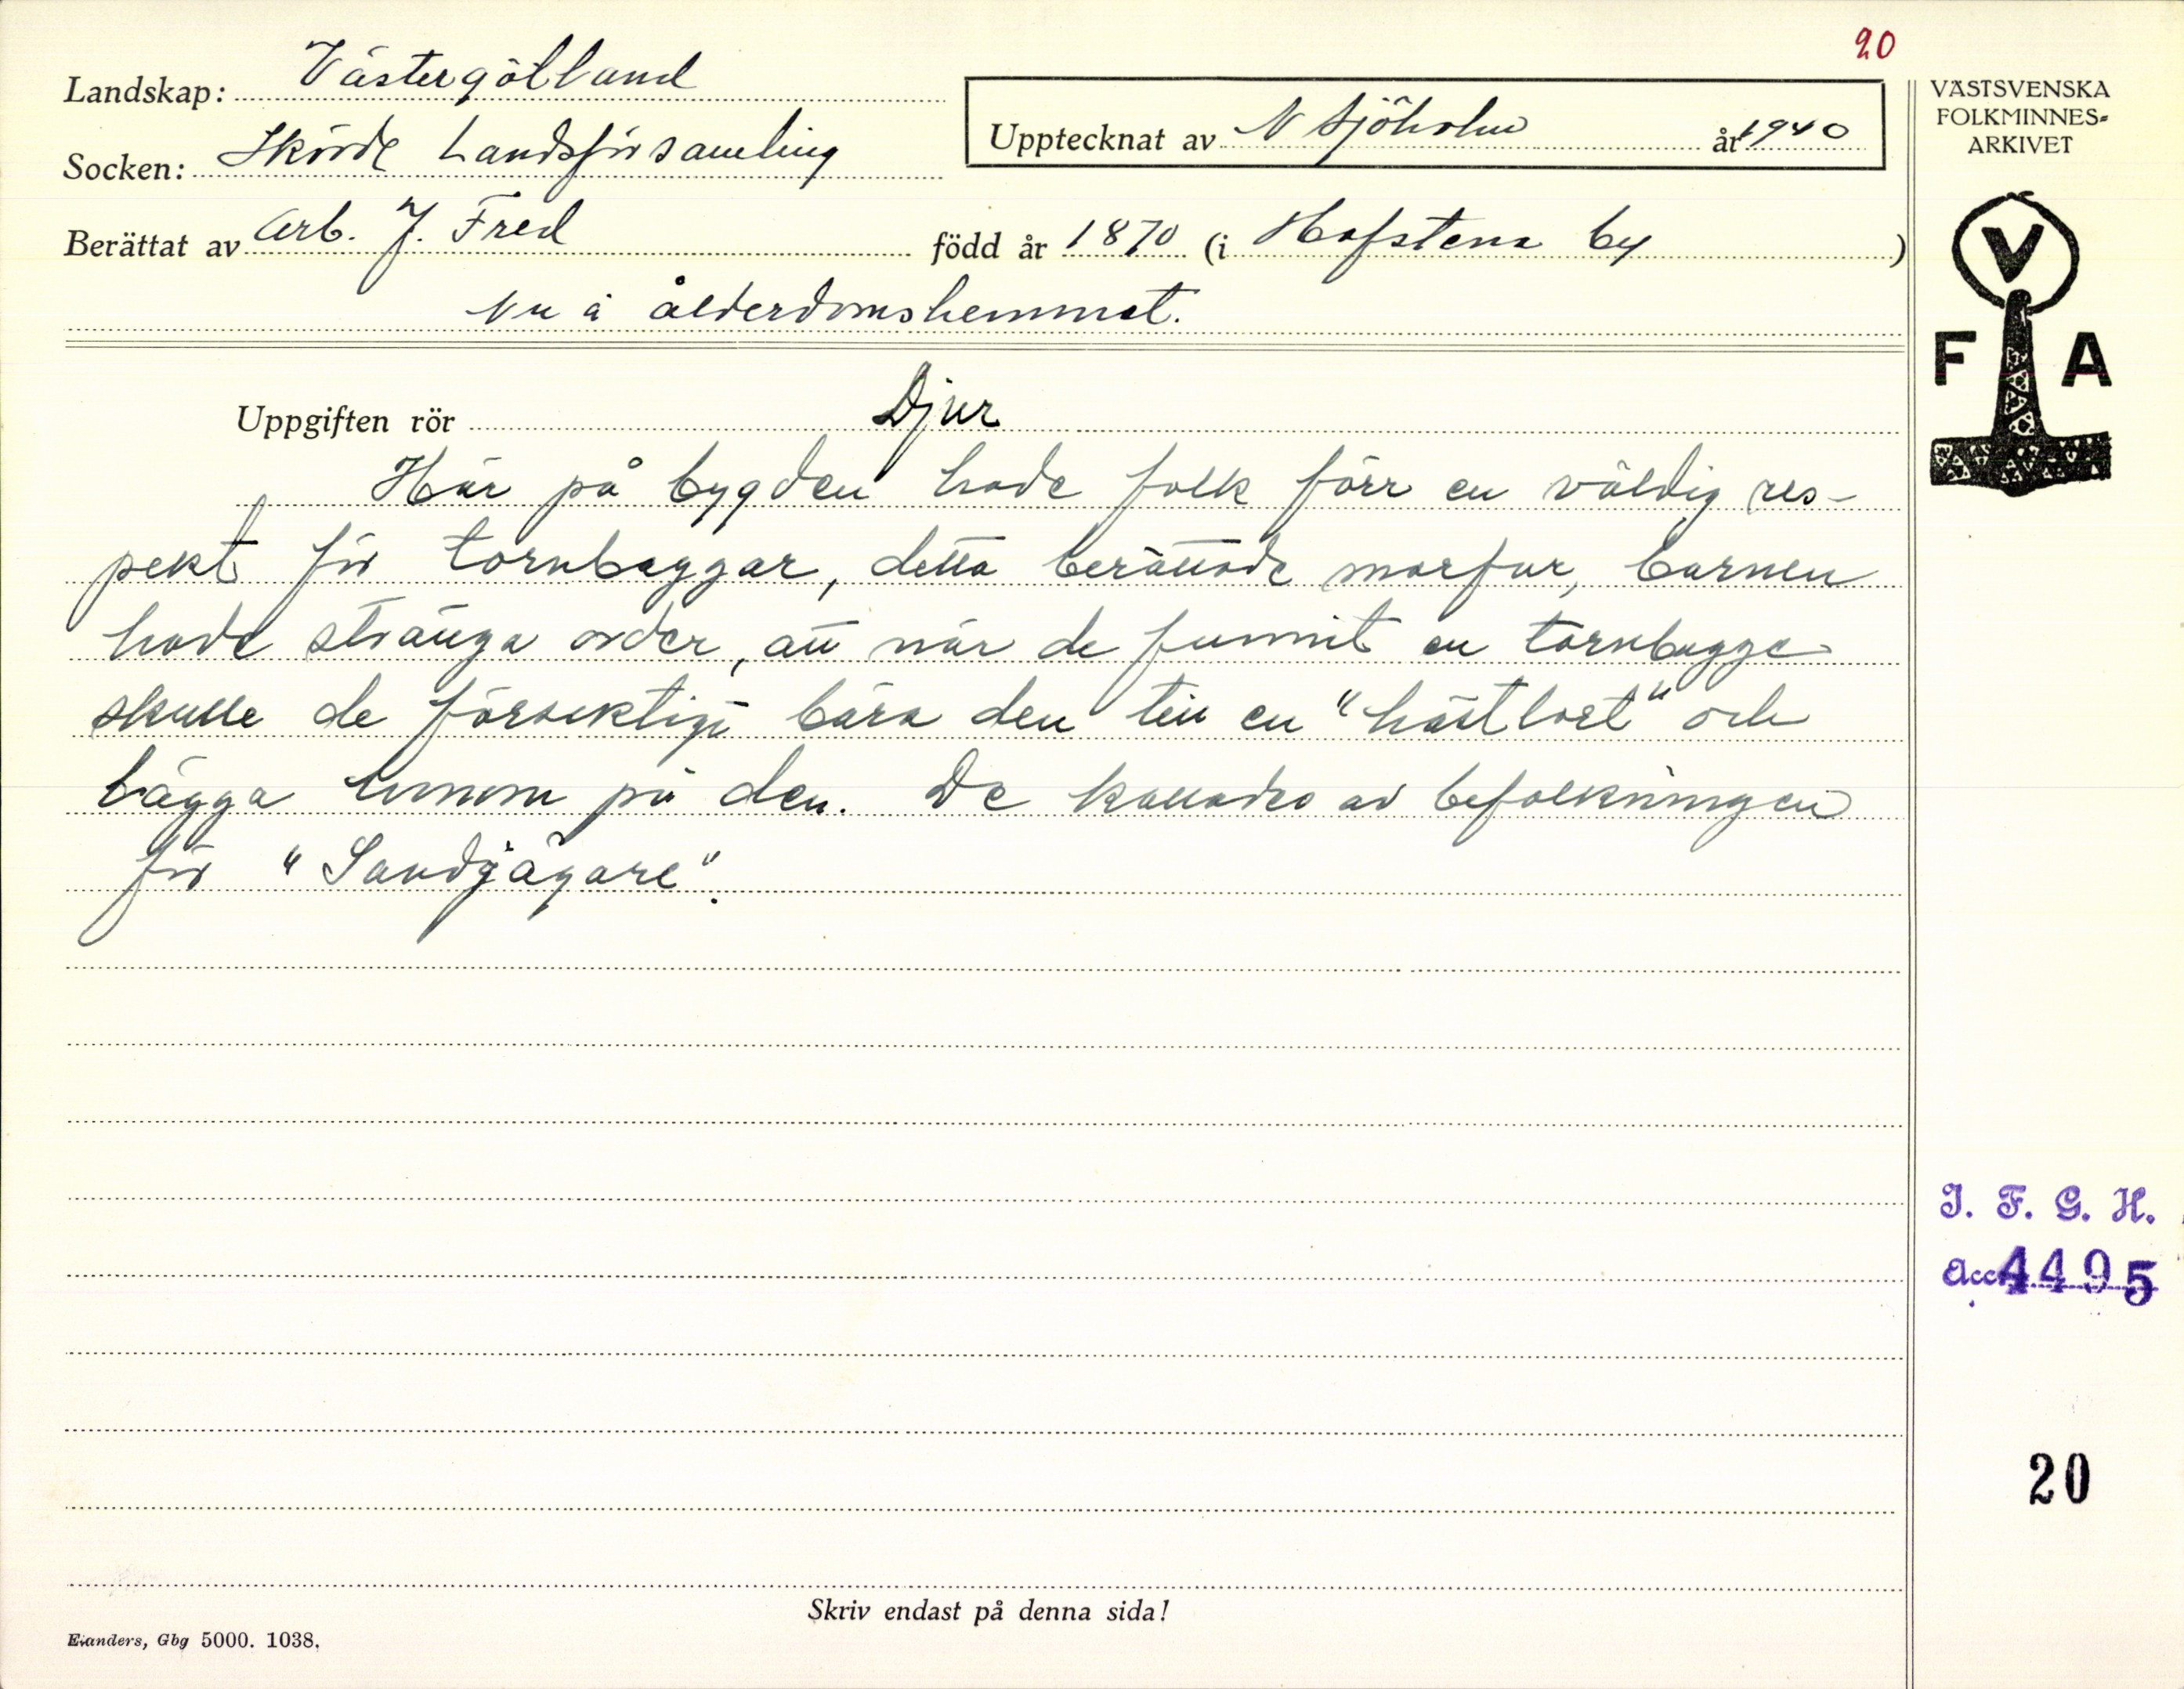 20
Landskap: Västergötland
Socken: Skövde Landsförsamling
Upptecknat av N Sjöholm år 1940
Berättat av Arb. J. Fred född år 1870 (i Hafstena by)
Nu å ålderdomshemmet.
VÄSTSVENSKA
FOLKMINNES=
ARKIVET
V
F A
Uppgiften rör Djur
Här på bygden hade folk förr en väldig res-
pekt för tornbaggar, detta berättade morfar, barnen
hade stränga order, att når de funnit en tornbagge
skulle de försiktigt bära den till en "hästlort" och
lägga honom på den. De kallades av befolkningen
för "Sandjägare".
I. F. G. H.
Acc. 4495
20
Skriv endast på denna sida!
Elanders, Gbg 5000. 1038.